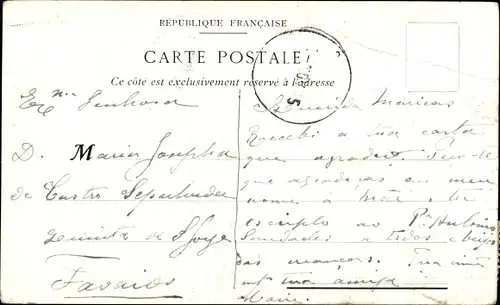 RÉPUBLIQUE FRANÇAISE
CARTE POSTALE
Ce côté est exclusivement réservé à l'adresse
Exᵐᵃ Senhora
D. Maria Josepha
de Castro Sepulveda
Quinta de
Favaios
Querida Maricas
Recebi a tua carta
que agradeço. Peço-te
que agradeças em meu
nome à Mãe, ter
escripto ao Pᵉ
Saudades a todos e beijos
às creanças. Tua
tua amiga